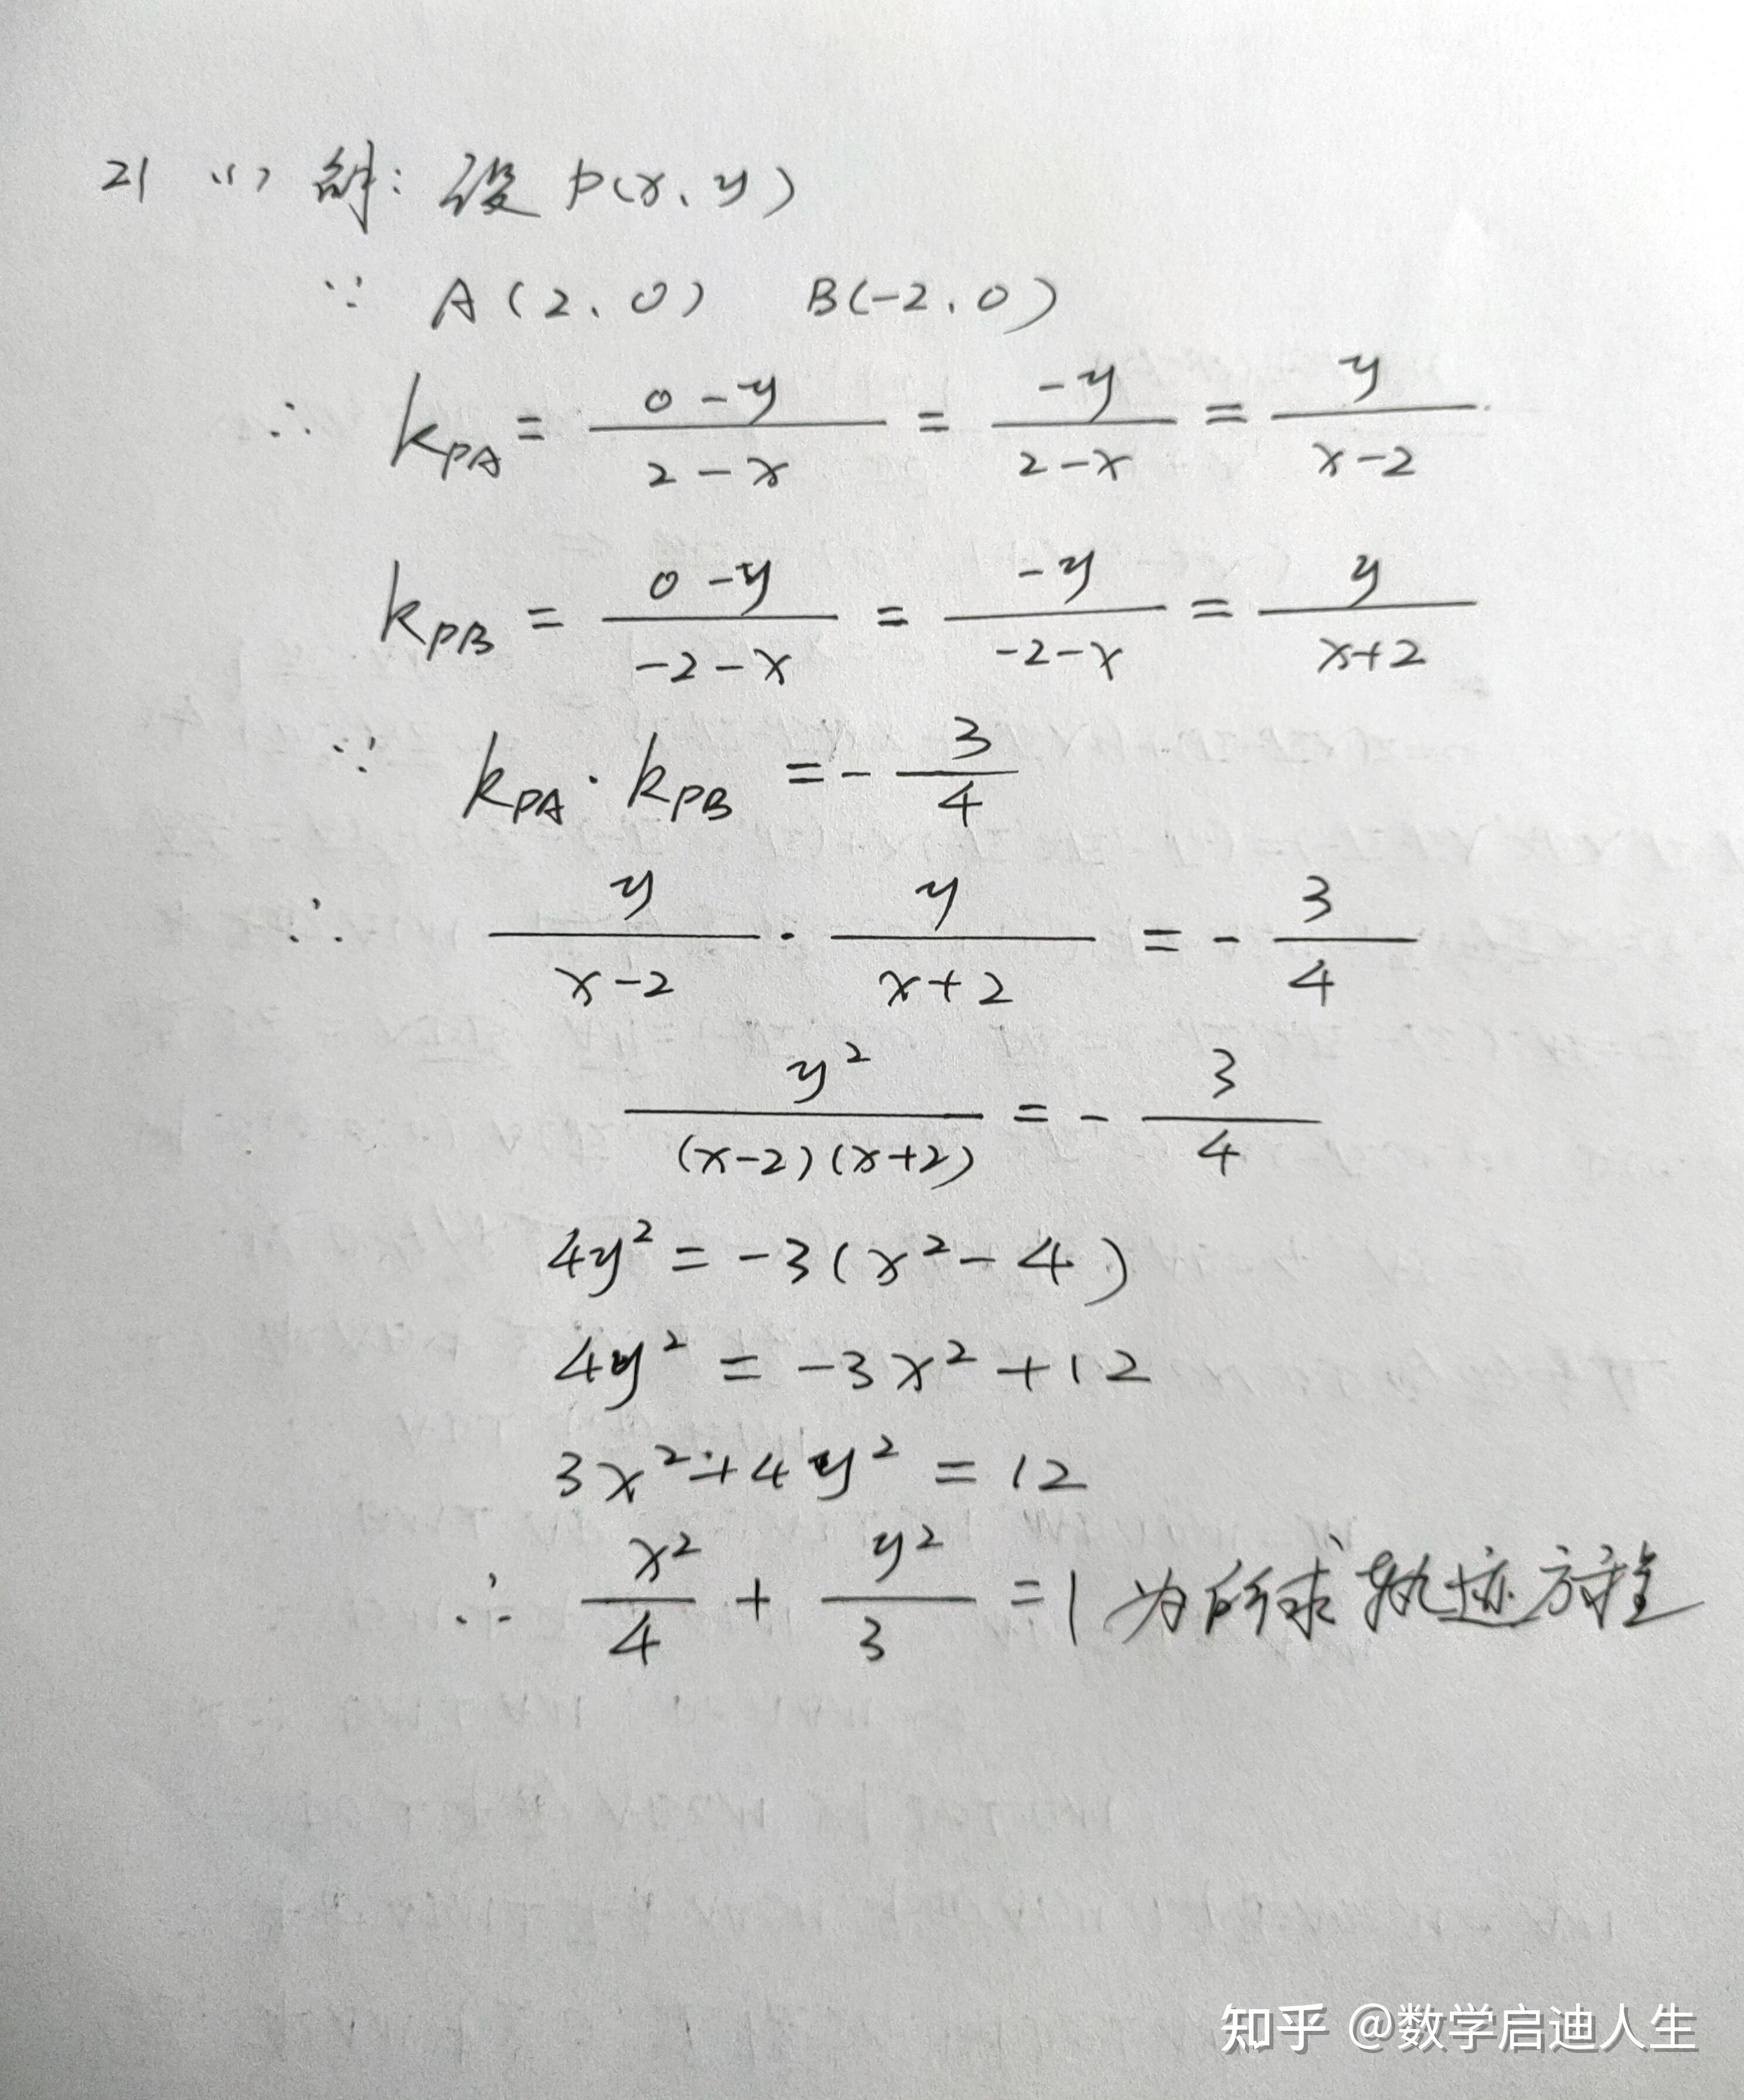 21 (1) 解: 设 P(x、y)
∵ A(2、0) B(-2、0)
∴ k_PA = (0-y)/(2-x) = (-y)/(2-x) = y/(x-2)
k_PB = (0-y)/(-2-x) = (-y)/(-2-x) = y/(x+2)
∵ k_PA · k_PB = - 3/4
∴ y/(x-2) · y/(x+2) = - 3/4
y²/((x-2)(x+2)) = - 3/4
4y² = -3(x²-4)
4y² = -3x²+12
3x²+4y² = 12
∴ x²/4 + y²/3 = 1 为所求轨迹方程
知乎 @数学启迪人生